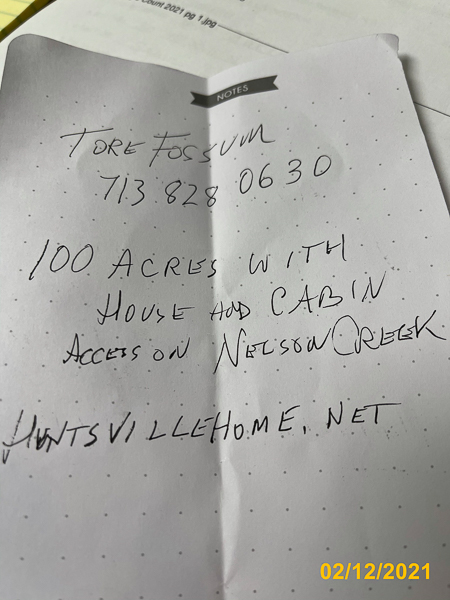 Count 2021 pg 1.jpg
NOTES
TORE FOSSUM
713 828 0630
100 ACRES WITH
HOUSE AND CABIN
ACCESS ON NELSON CREEK
HUNTSVILLEHOME.NET
02/12/2021